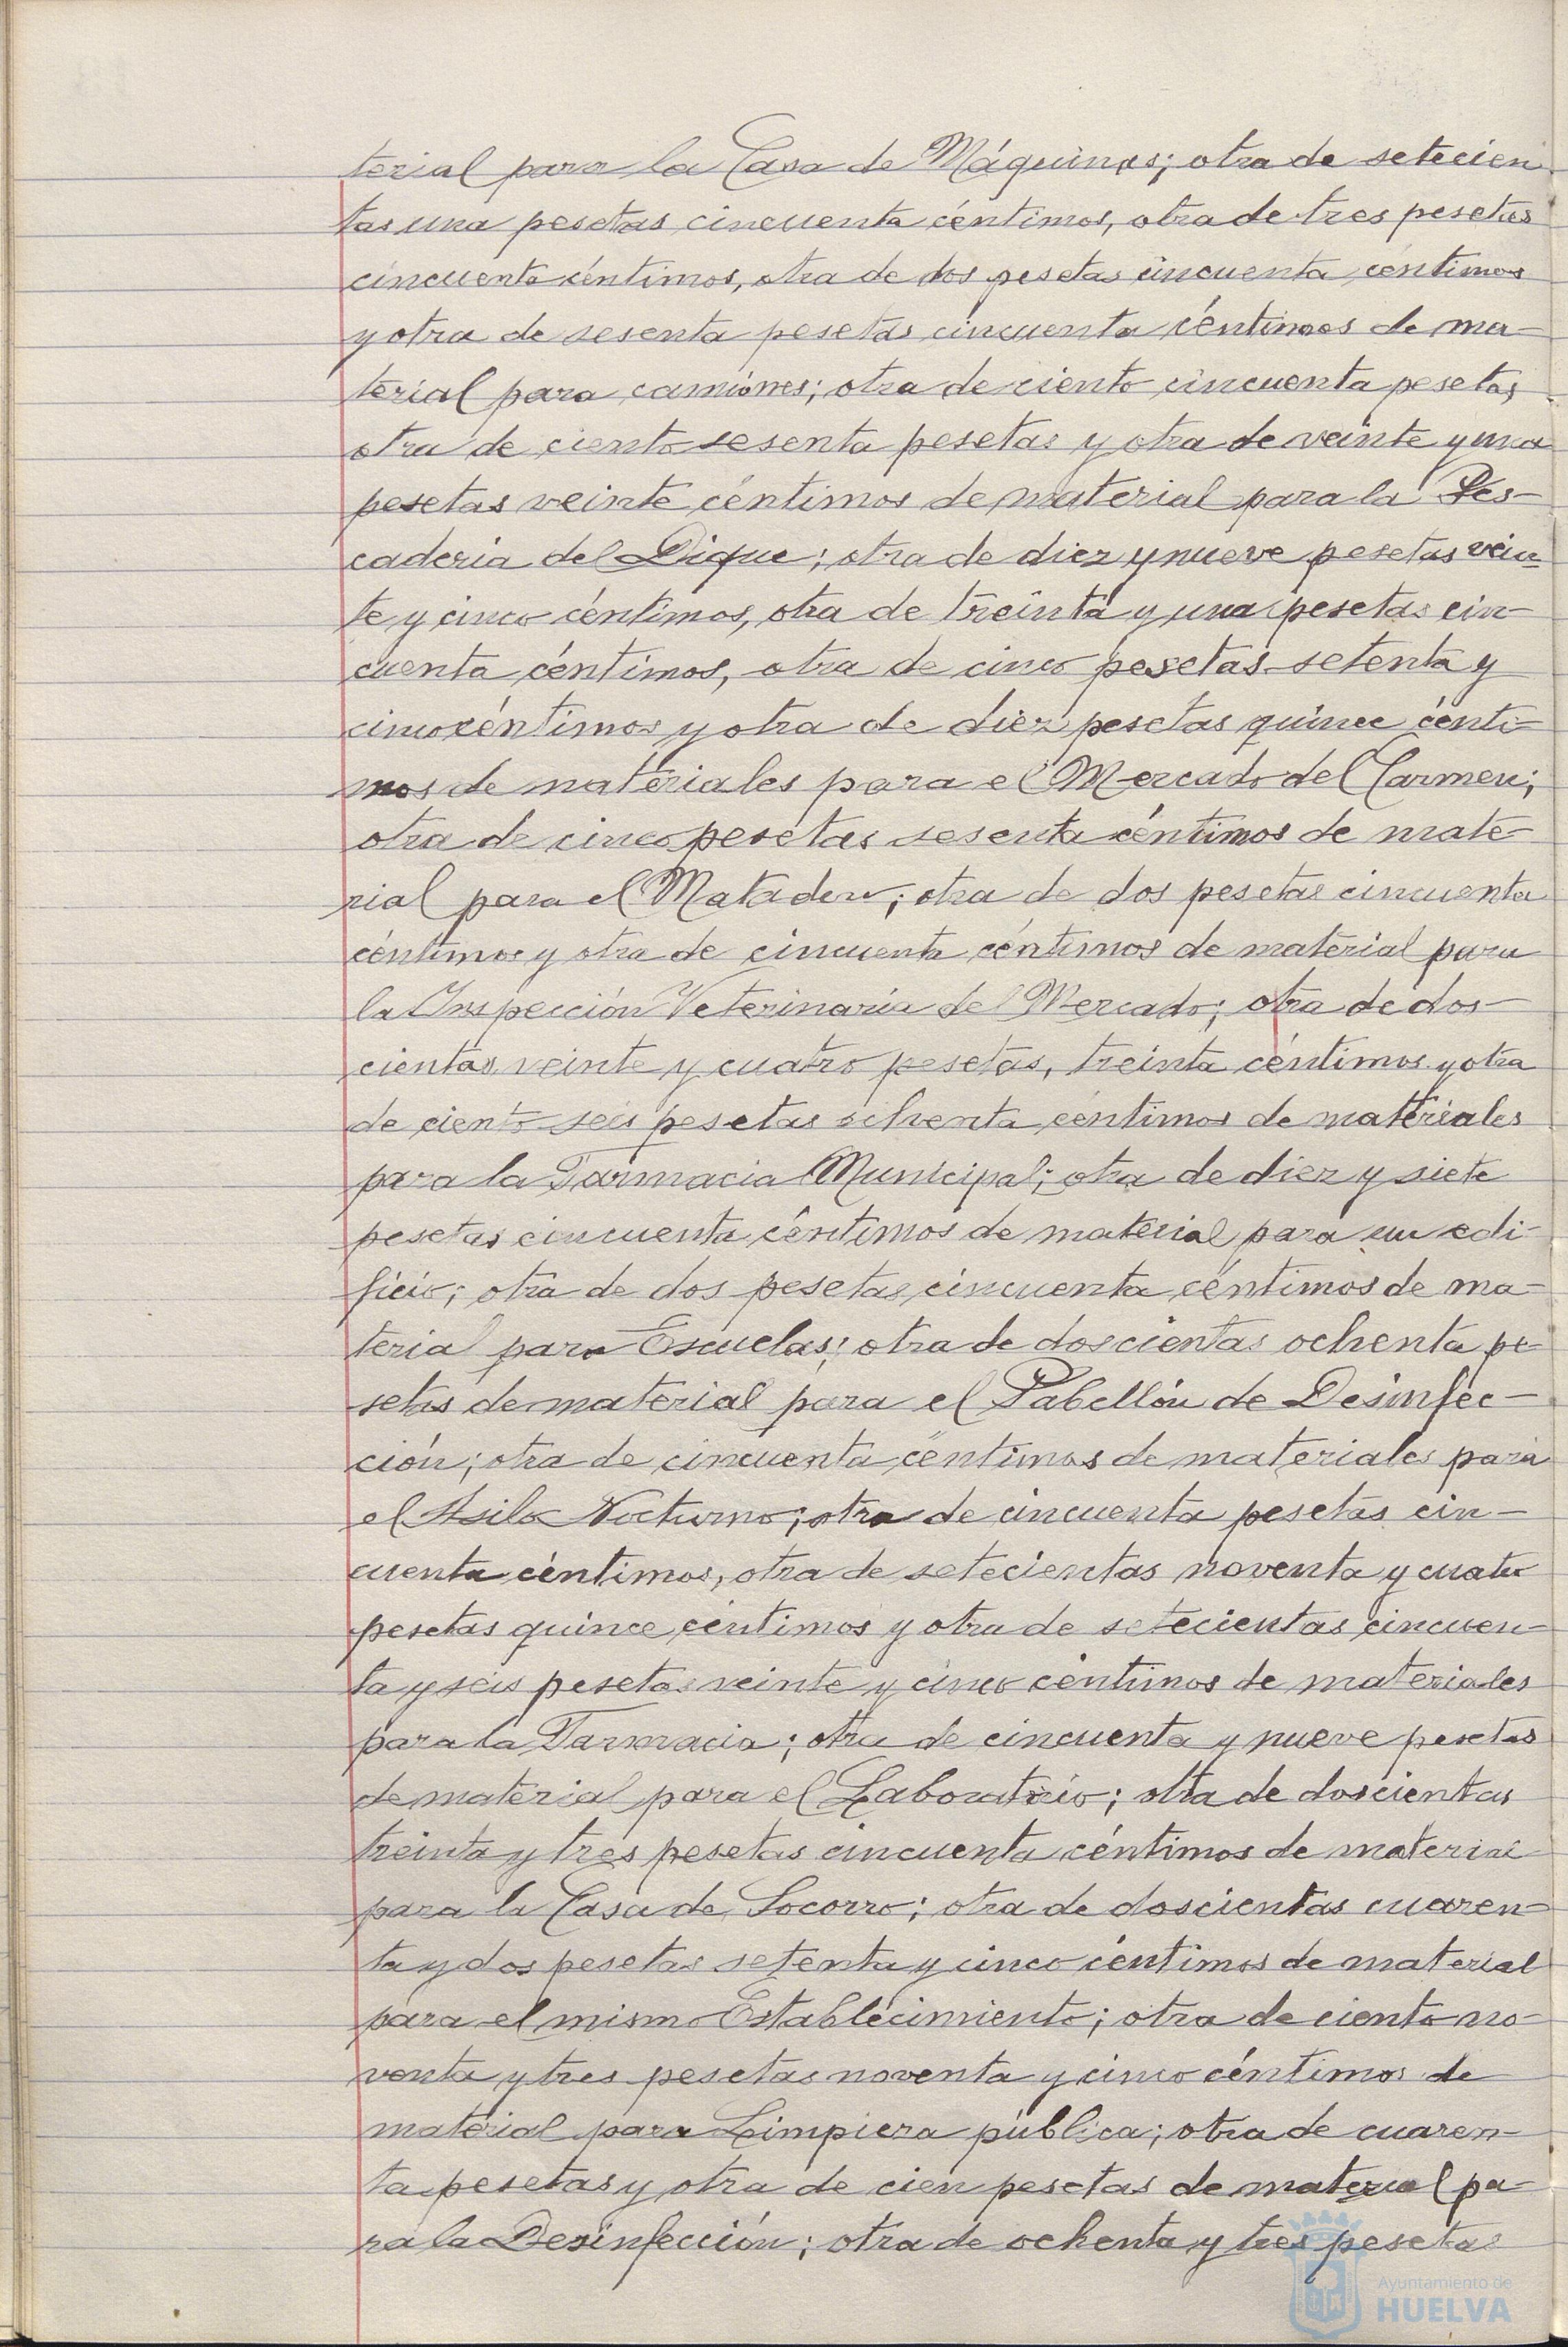 terial para la Casa de Máquinas; otra de setecien
tas una pesetas cincuenta céntimos, otra de tres pesetas
cincuenta céntimos, otra de dos pesetas cincuenta céntimos
y otra de sesenta pesetas cincuenta céntimos de ma-
terial para camiones; otra de ciento cincuenta pesetas,
otra de ciento sesenta pesetas y otra de veinte y una
pesetas veinte céntimos de material para la Pes-
cadería del Dique; otra de diez y nueve pesetas vein-
te y cinco céntimos, otra de treinta y una pesetas cin-
cuenta céntimos, otra de cinco pesetas setenta y
cinco céntimos y otra de diez pesetas quince cénti-
mos de materiales para el Mercado del Carmen;
otra de cinco pesetas sesenta céntimos de mate-
rial para el Matadero; otra de dos pesetas cincuenta
céntimos y otra de cincuenta céntimos de material para
la Inspección Veterinaria del Mercado; otra de dos-
cientas veinte y cuatro pesetas, treinta céntimos y otra
de ciento seis pesetas ochenta céntimos de materiales
para la Farmacia Municipal; otra de diez y siete
pesetas cincuenta céntimos de material para un edi-
ficio; otra de dos pesetas cincuenta céntimos de ma-
terial para Escuelas; otra de doscientas ochenta pe-
setas de material para el Pabellón de Desinfec-
ción; otra de cincuenta céntimos de materiales para
el Asilo Nocturno; otra de cincuenta pesetas cin-
cuenta céntimos, otra de setecientas noventa y cuatro
pesetas quince céntimos y otra de setecientas cincuen-
ta y seis pesetas veinte y cinco céntimos de materiales
para la Farmacia; otra de cincuenta y nueve pesetas
de material para el Laboratorio; otra de doscientas
treinta y tres pesetas cincuenta céntimos de material
para la Casa de Socorro; otra de doscientas cuaren-
ta y dos pesetas setenta y cinco céntimos de material
para el mismo Establecimiento; otra de ciento no-
venta y tres pesetas noventa y cinco céntimos de
material para Limpieza pública; otra de cuaren-
ta pesetas y otra de cien pesetas de material pa-
ra la Desinfección; otra de ochenta y tres pesetas
Ayuntamiento de
HUELVA